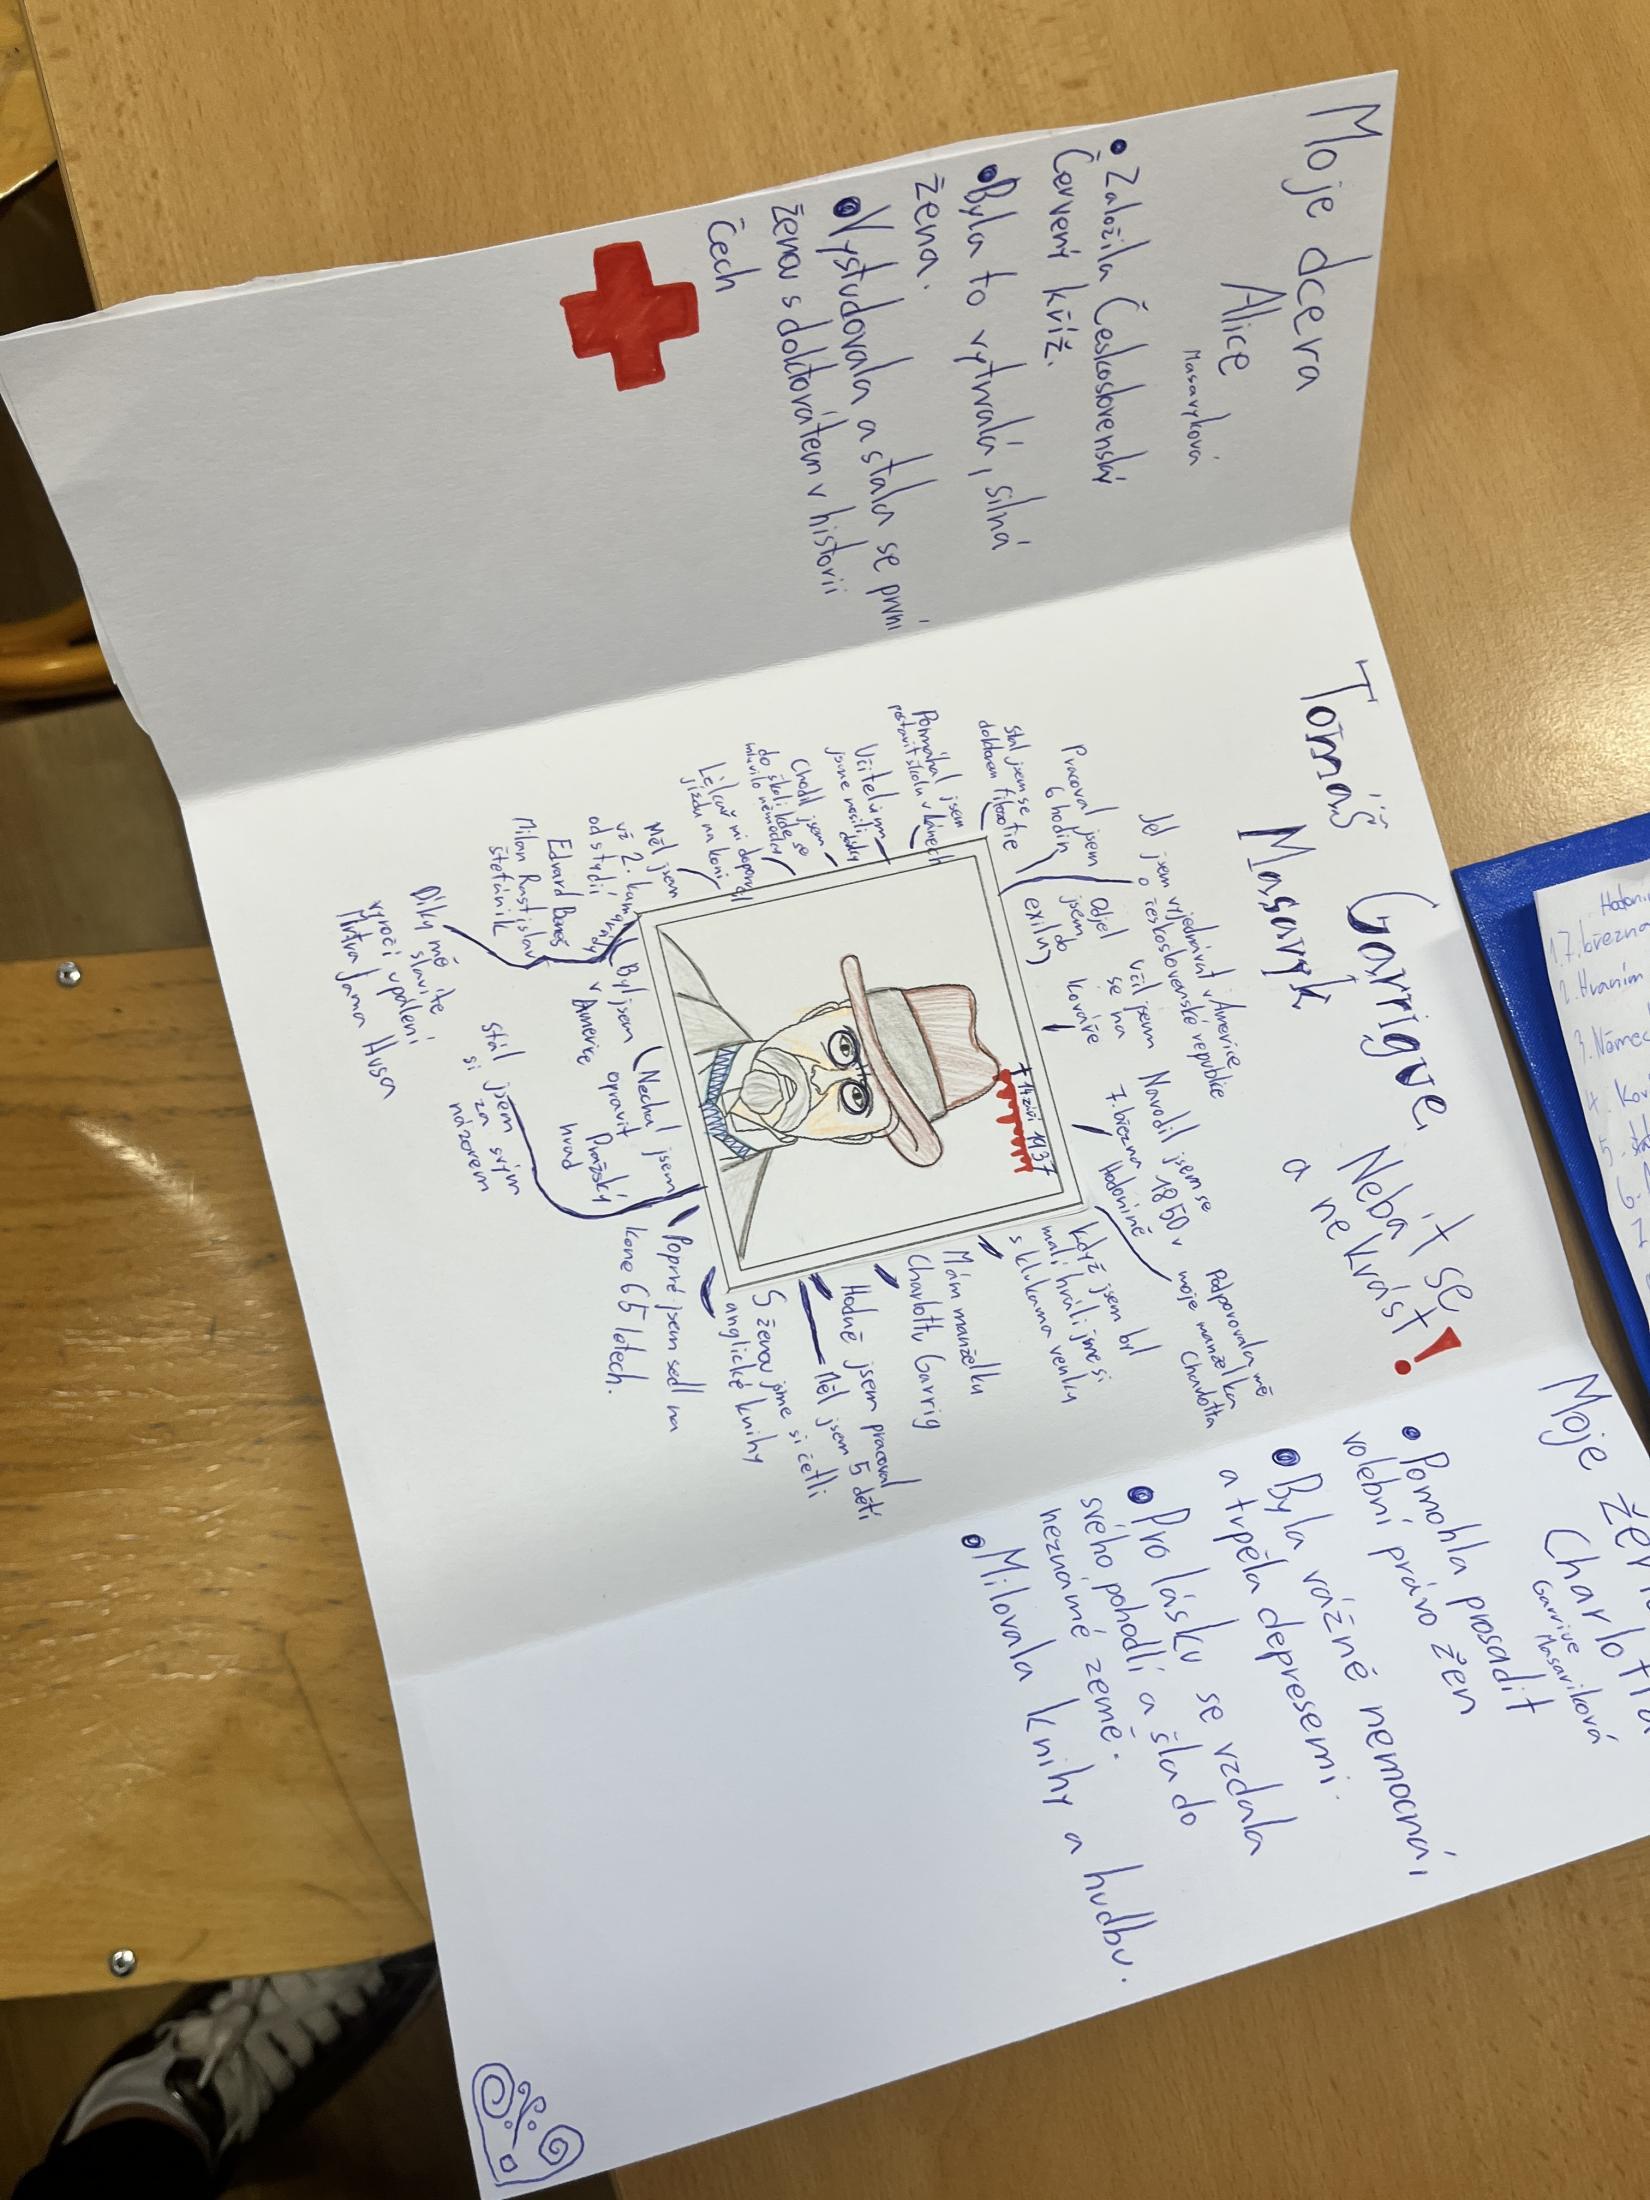 Moje dcera
Alice
Masaryková
• Založila Československý
Červený kříž.
• Byla to vytrvalá, silná
žena.
• Vystudovala a stala se první
ženou s doktorátem v historii
Čech
Tomáš Garrigue
Masaryk
Nebát se
a nekrást!
Jel jsem vyjednávat v Americe
o československé republice
Pracoval jsem
6 hodin
Stal jsem se
doktorem filozofie
Pomáhal jsem
postavit školu v
Učitelům
jsme nosili dárky
Chodil jsem
do školi kde se
mluvilo německy
Lékař mi doporučil
jízdu na koni
Měl jsem
už 2. kamarády
od studií
Edvard Beneš
Milan Rastislav
Štefánik
Díky mě
slavíte
výročí upálení
Mistra Jana Husa
Odjel
jsem do
exilu
Učil jsem
se na
kováře
Narodil jsem se
7. března 1850 v
Hodoníně
Podporovala mě
moje manželka
Charlotta
Když jsem byl
malí hráli jsme si
s klukama venku
Mám manželku
Charlottu Garrig
Hodně jsem pracoval
Měl jsem 5 dětí
S ženou jsme si četli
anglické knihy
Poprvé jsem sedl na
kone 65 letech.
Nechal jsem
opravit Pražský
hrad
Byl jsem
v Americe
Stál jsem
si za svým
názorem
† 14 září 1937
Moje
Charlotta
Garrive
Masariková
• Pomohla prosadit
volební právo žen
• Byla vážně nemocná
a trpěla depresemi.
• Pro lásku se vzdala
svého pohodlí a šla do
neznámé země.
• Milovala knihy a hudbu.
1. 7. března
2. Hraním
3. Němec